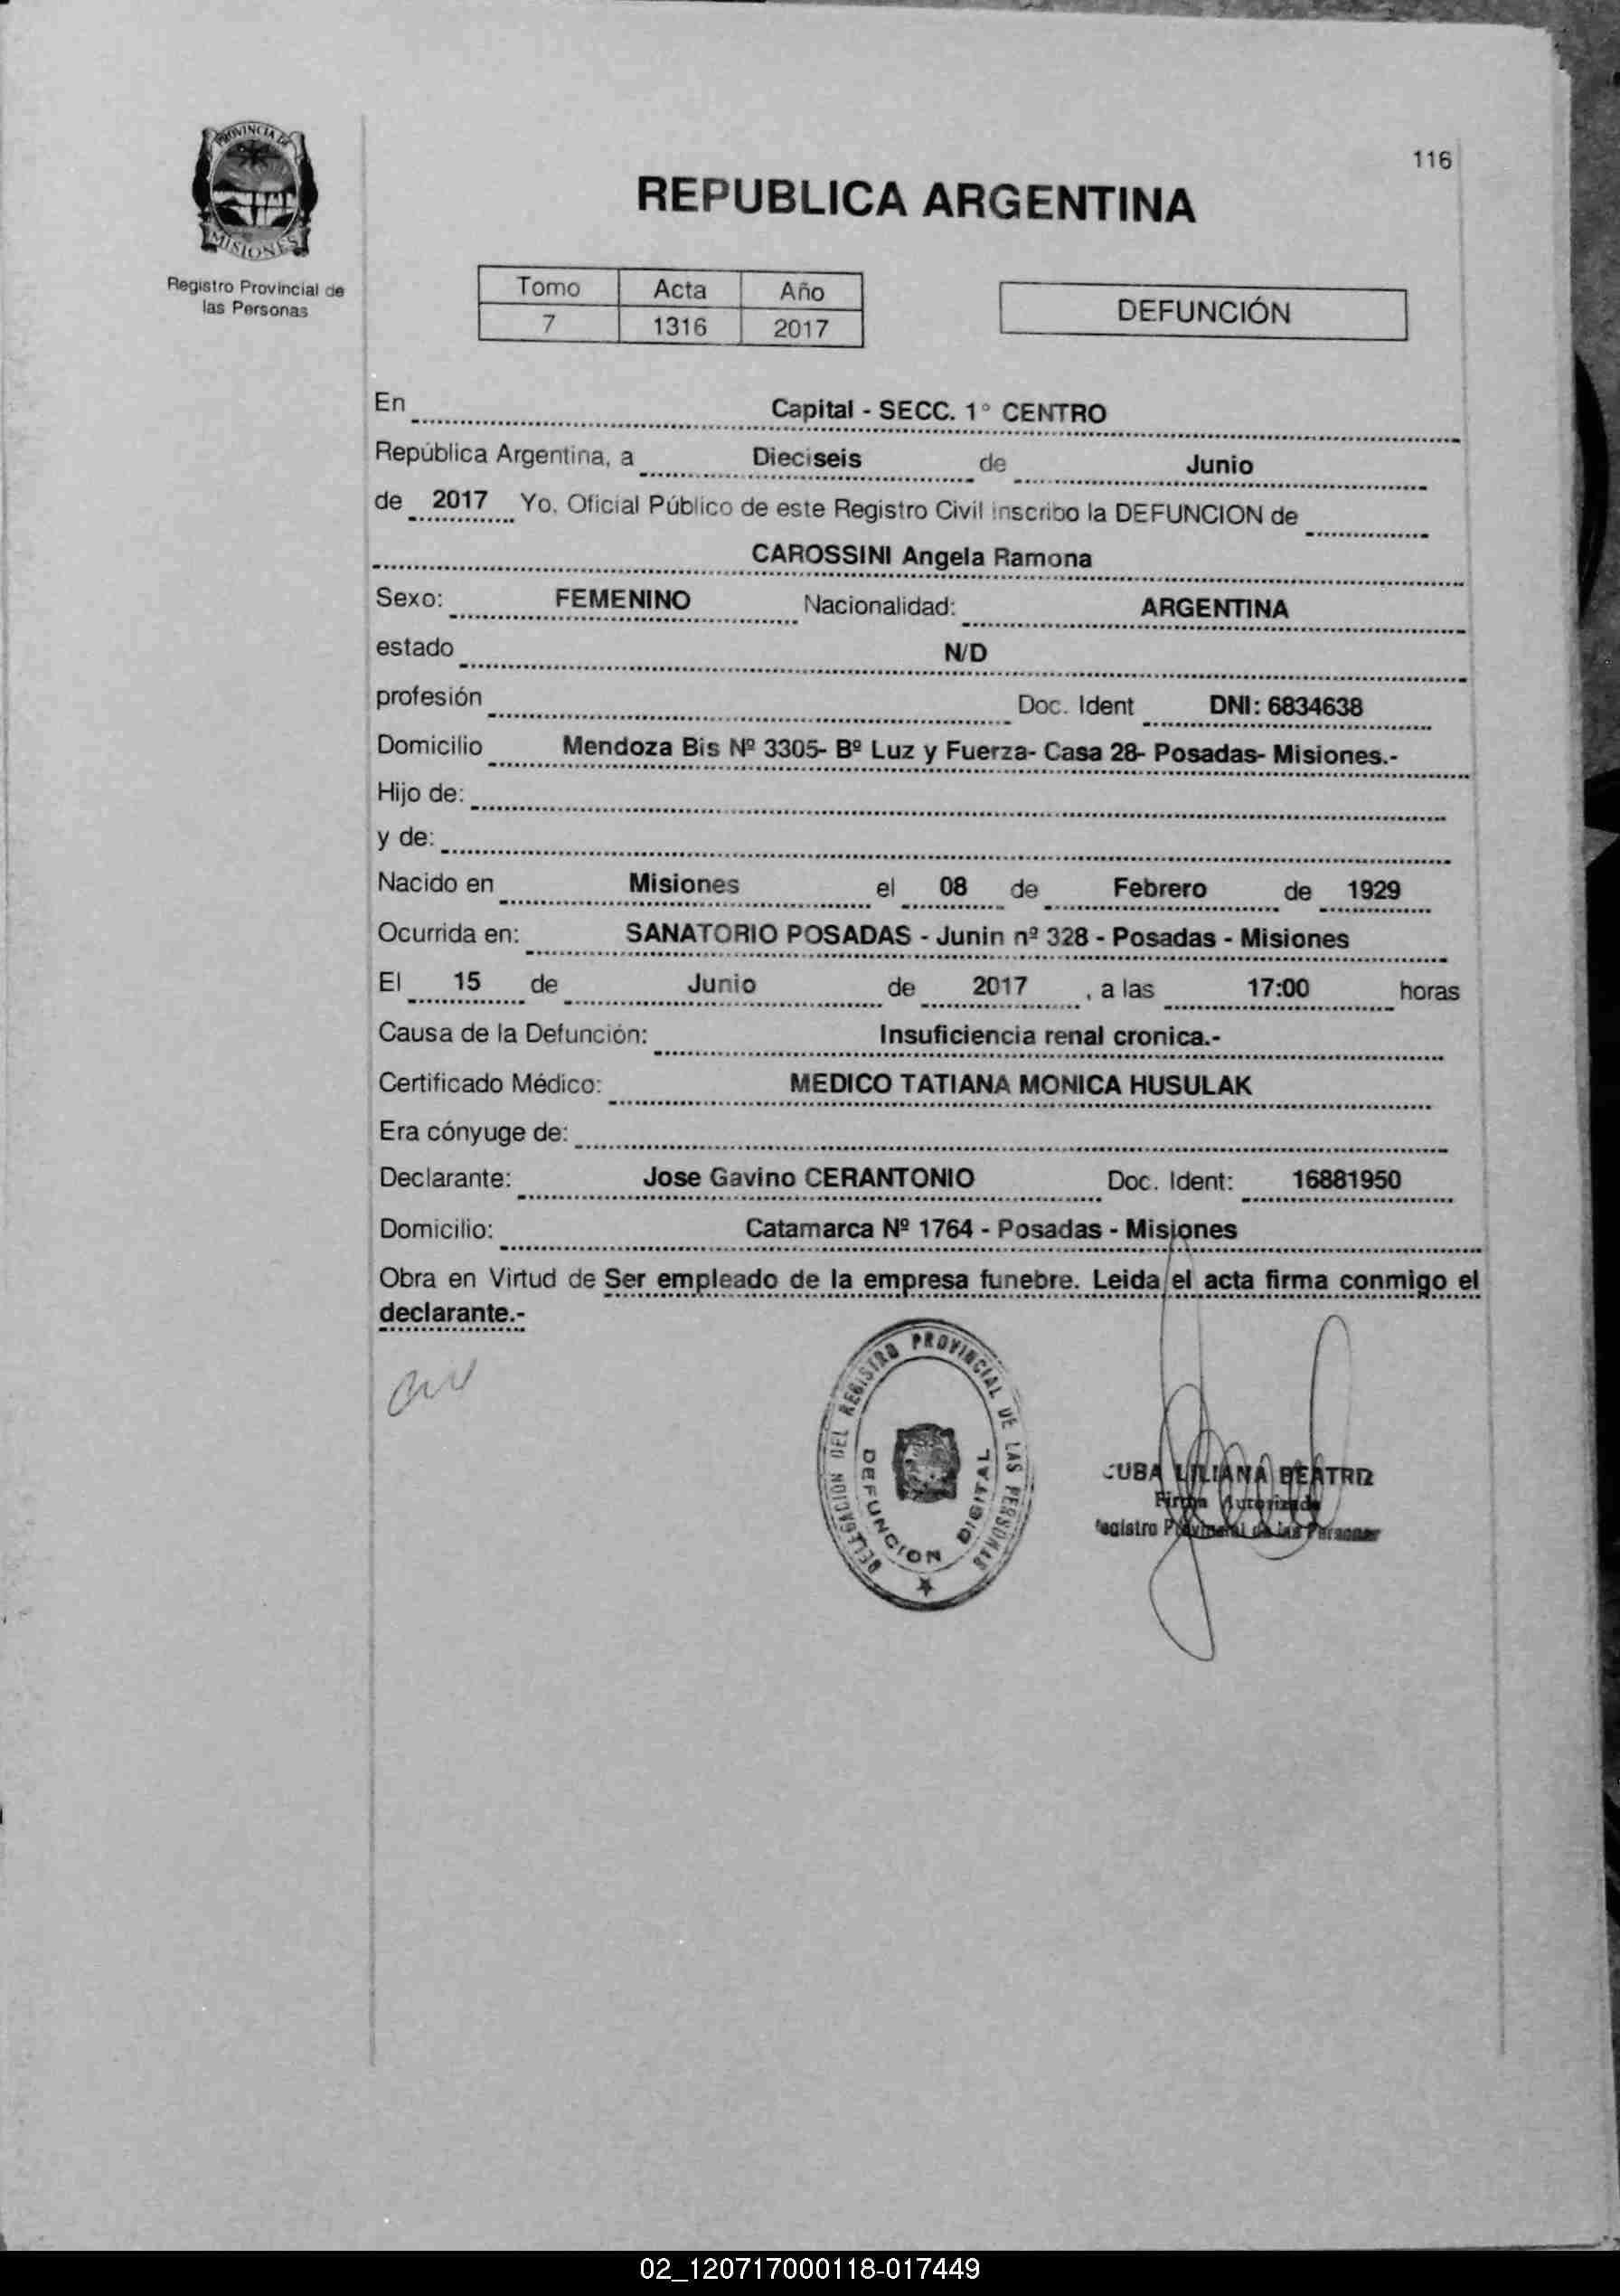 PROVINCIA DE
MISIONES
Registro Provincial de
las Personas
116
REPUBLICA ARGENTINA
Tomo Acta Año
7 1316 2017
DEFUNCIÓN
En Capital - SECC. 1° CENTRO
República Argentina, a Dieciseis de Junio
de 2017 Yo, Oficial Público de este Registro Civil inscribo la DEFUNCION de
CAROSSINI Angela Ramona
Sexo: FEMENINO Nacionalidad: ARGENTINA
estado N/D
profesión Doc. Ident DNI: 6834638
Domicilio Mendoza Bis Nº 3305- Bº Luz y Fuerza- Casa 28- Posadas- Misiones.-
Hijo de:
y de:
Nacido en Misiones el 08 de Febrero de 1929
Ocurrida en: SANATORIO POSADAS - Junin nº 328 - Posadas - Misiones
El 15 de Junio de 2017 , a las 17:00 horas
Causa de la Defunción: Insuficiencia renal cronica.-
Certificado Médico: MEDICO TATIANA MONICA HUSULAK
Era cónyuge de:
Declarante: Jose Gavino CERANTONIO Doc. Ident: 16881950
Domicilio: Catamarca Nº 1764 - Posadas - Misiones
Obra en Virtud de Ser empleado de la empresa funebre. Leida el acta firma conmigo el
declarante.-
DELEGACION DEL REGISTRO PROVINCIAL DE LAS PERSONAS
DEFUNCION DIGITAL
CUBA LILIANA BEATRIZ
Firma Autorizada
Registro Provincial de las Personas
02_120717000118-017449